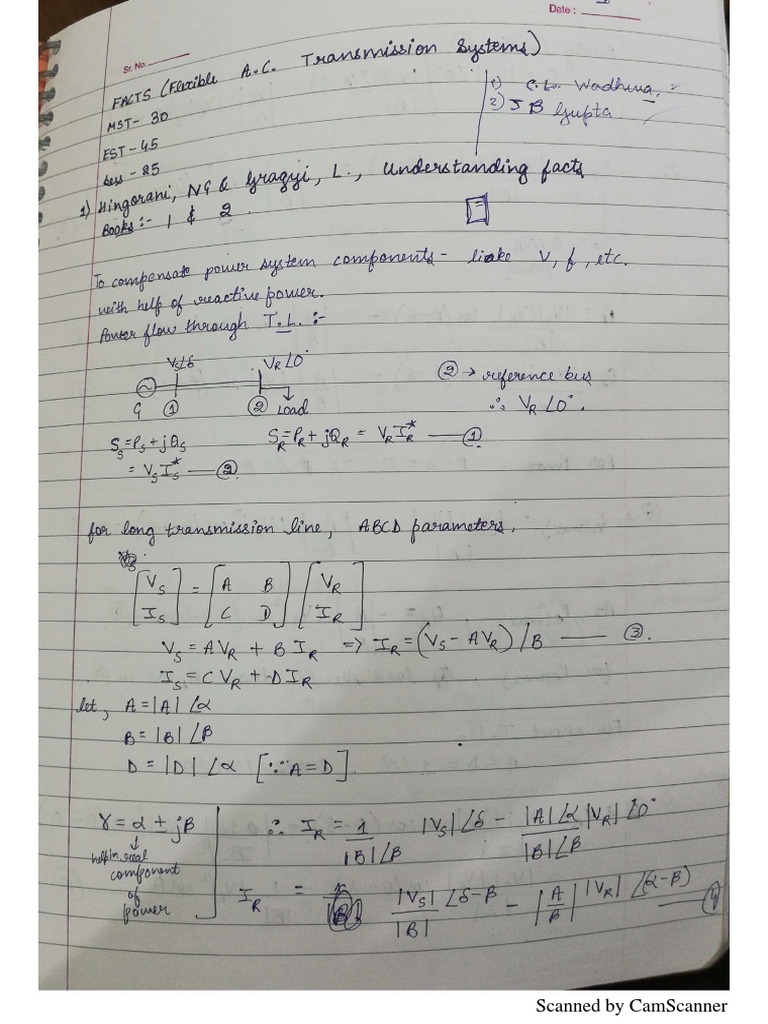 Date :
Sr. No.
FACTS (Flexible A.C. Transmission Systems)
MST- 30
EST - 45
Sess - 25
1) C.L. Wadhwa
2) J B Gupta
1) Hingorani, NG & Gragyi, L., Understanding facts
Books :- 1 & 2.
To compensate power system components - like V, f, etc.
with help of reactive power.
Power flow through T.L. :-
Vs∠δ VR∠0°
G ① ② Load
② → reference bus
∴ VR ∠0°.
Ss = Ps + jQs
= Vs Is* —— ②
SR = PR + jQR = VR IR* —— ①
for long transmission line, ABCD parameters,
[Vs Is] = [A B C D] [VR IR]
Vs = AVR + BIR => IR = (Vs - AVR) / B —— ③.
Is = CVR + DIR
let, A = |A| ∠α
B = |B| ∠β
D = |D| ∠α [∵ A = D].
γ = α + jβ
↓
help in real
component
of
power
∴ IR = 1/|B|∠β |Vs|∠δ - |A|∠α/|B|∠β |VR|∠0°
IR = |Vs|/|B| ∠δ-β - |A/B| |VR| ∠(α-β) —— ④
Scanned by CamScanner